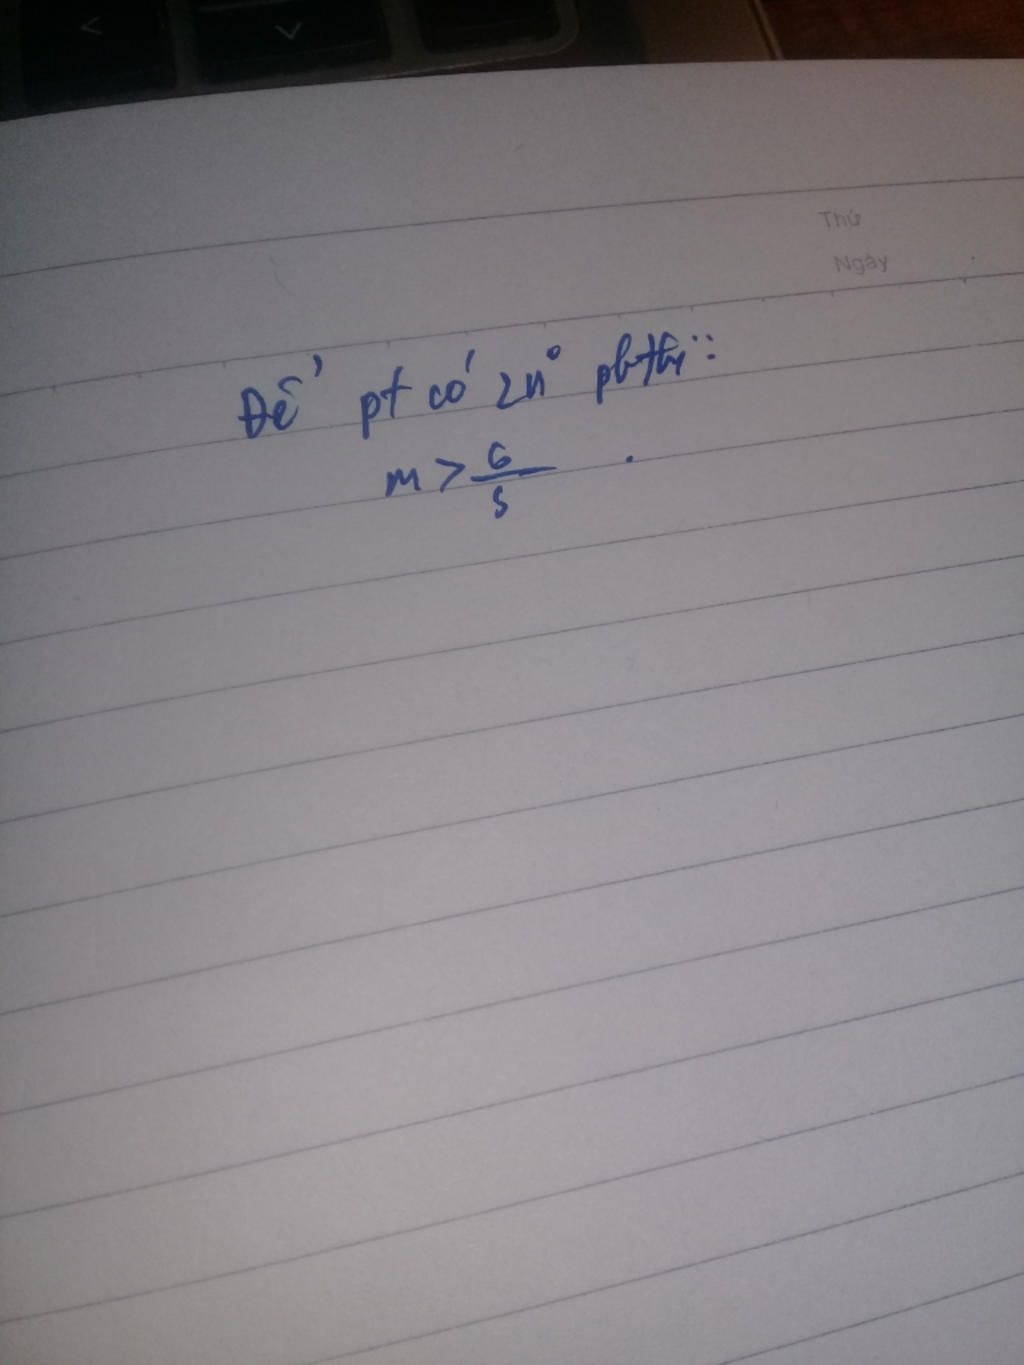 Thứ
Ngày
Để pt có 2n° pb thì:
m > 6/5 .